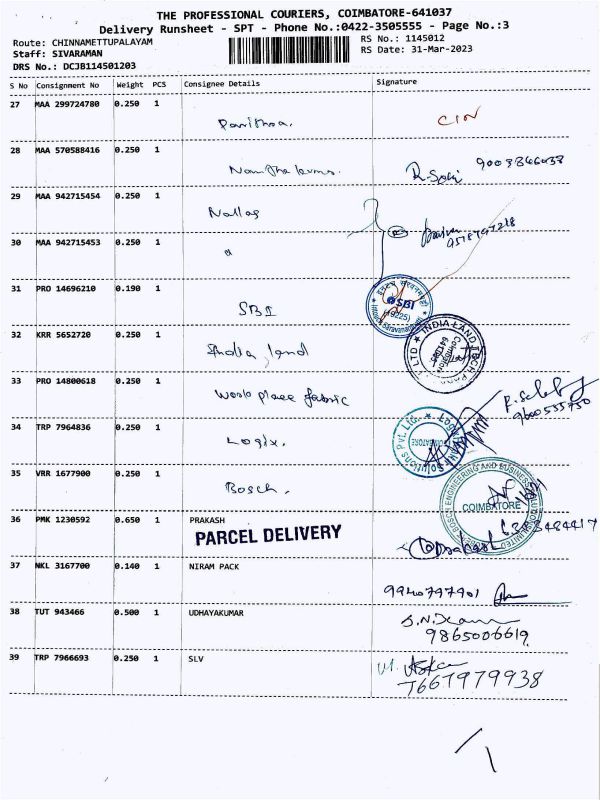 THE PROFESSIONAL COURIERS, COIMBATORE-641037
Delivery Runsheet - SPT - Phone No.:0422-3505555 - Page No.:3
Route: CHINNAMETTUPALAYAM
RS No.: 1145012
Staff: SIVARAMAN
RS Date: 31-Mar-2023
DRS No.: DCJB114501203
S No Consignment No Weight PCS Consignee Details Signature
27 MAA 299724780 0.250 1
CIN
28 MAA 570588416 0.250 1
29 MAA 942715454 0.250 1
Nallas
30 MAA 942715453 0.250 1
31 PRO 14696210 0.190 1
SBI
SBI
(19225)
32 KRR 5652720 0.250 1
India land
INDIA LAND TECH
33 PRO 14800618 0.250 1
Work place fabric
34 TRP 7964836 0.250 1
Logix.
Solutions Pvt. Ltd. Logix
35 VRR 1677900 0.250 1
Bosch.
BOSCH ENGINEERING AND BUSINESS
COIMBATORE
36 PMK 1230592 0.650 1 PRAKASH
PARCEL DELIVERY
37 NKL 3167700 0.140 1 NIRAM PACK
9940797901
38 TUT 943466 0.500 1 UDHAYAKUMAR
9865006619
39 TRP 7966693 0.250 1 SLV
7667979938